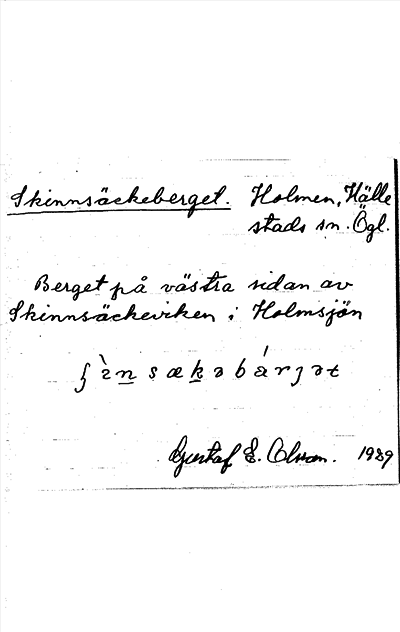 Skinnsäckeberget. Holmen, Hälle
stads sn. Ögl.
Berget på västra sidan av
Skinnsäckeviken i Holmsjön
Gustaf E. Olsson. 1939